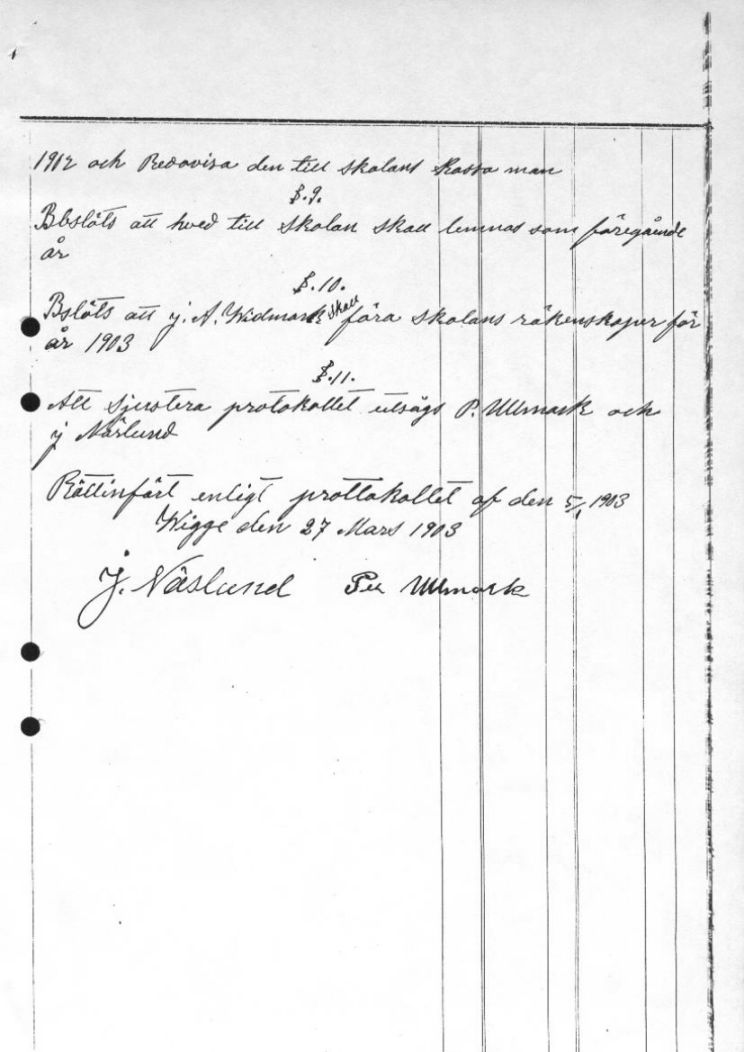 1912 och Redovisa den till skolans Kassa man
§.9.
Bbslöts att hved till skolan skall lemnas som föregående
år
§.10.
Bslöts att j. A. Widmark skall föra skolans räkenskaper för
år 1903
§.11.
Att Sjustera protokollet utsågs P. Ullmark och
j Näslund
Rättinfört enligt prottokollet af den 5/1 1903
Wigge den 27 Mars 1903
J. Näslund Per Ullmark